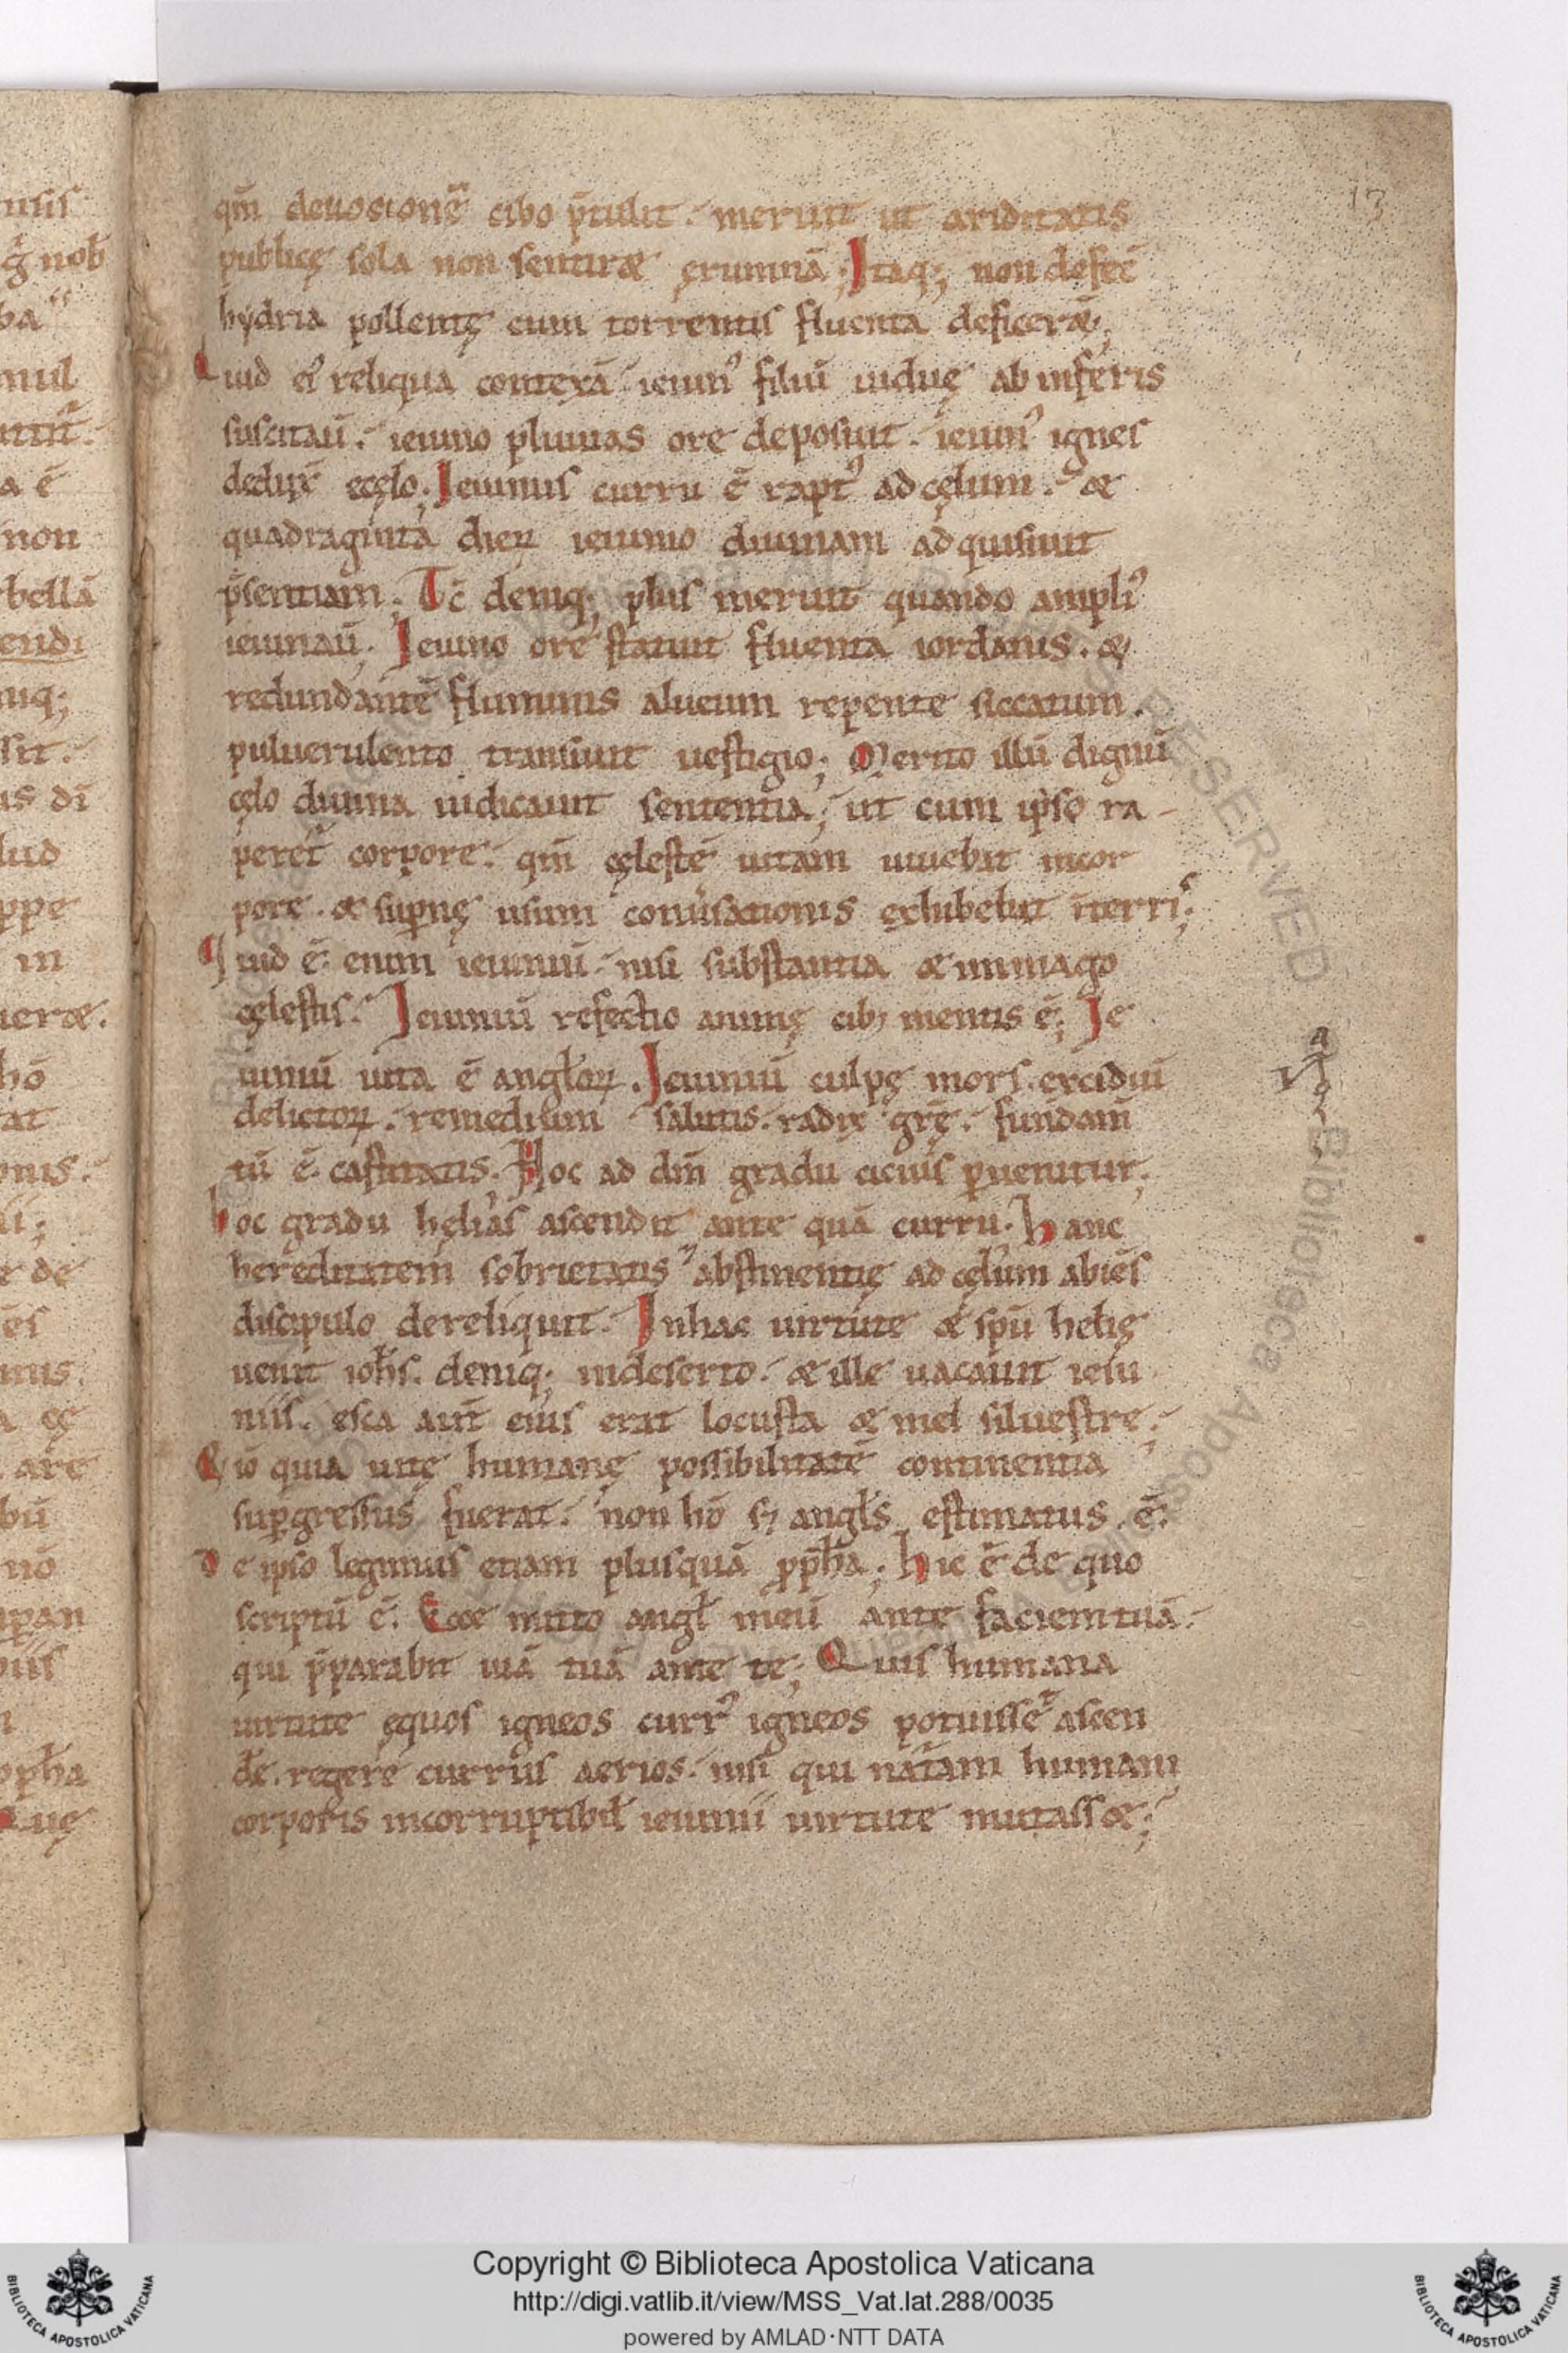 13
qm̄ deuotionē cibo p̄tulit. meruit ut ariditatis
publicę sola non sentiræ ęrumnā; Itaq; non defec̄
hydria pollentę cum torrentis fluenta deficeræ;
Quid & reliqua contexā. ieiun' filiū uiduę ab inferis
suscitau̅. ieiuno pluuias ore deposuit. ieiun' ignes
dedux̄ ecęlo; Ieiunus curru ē rapt' ad cęlum. &
quadraginta dieꝝ ieiunio diuinam adquisiuit
p̄sentiam; Tc̄ deniq; plus meruit quando ampli'
ieiunau̅; Ieiuno ore statuit fluenta iordanis. &
redundantē fluminis alueum repente siccatum.
puluerulento transiuit uestigio; Merito illū dignū
cęlo diuina iudicauit sententia; ut cum ipso ra-
peret̄ corpore. qm̄ cęlestē uitam uiuebat incor
pore. & sup̄nę usum conu̅sationis exhibebat īterri';
Quid ē enim ieiuniū. nisi substantia & immago
cęlestis. Ieiuniū refectio animę cib; mentis ē; Ie
iuniū uita ē angłoꝝ. Ieiuniū culpę mors. excidiū
delictoꝝ. remedium salutis. radix grę̄. fundam̄
tū ē castitatis; Hoc ad dm̄ gradu cicius p̄uenitur;
hoc gradu hęlias ascendit ante quā curru. Hanc
hereditatem sobrietatis abstinentię ad cęlum abiēs
discipulo dereliquit. Inhac uirtute & spū helię
uenit ioħs. deniq; indeserto. & ille uacauit ieiu
niis. esca aut̄ eius erat locusta & mel siluestre;
Et iō quia uitę humanę possibilitatē continentia
sup̱gressus fuerat. non hō s; angłs estimatus ē.
De ipso legimus etiam plusquā ꝓpħa; hic ē de quo
scriptū ē. Ecce mitto angł meū ante faciem tuā.
qui p̄parabit uiā tuā ante te; Quis humana
uirtute ęquos igneos curr' igneos potuisse᷑ ascen
de̅. regere currus aerios. nisi qui nat̄am humani
corporis incorruptibił ieiunii uirtute mutass&;
Copyright © Biblioteca Apostolica Vaticana
http://digi.vatlib.it/view/MSS_Vat.lat.288/0035
powered by AMLAD·NTT DATA
BIBLIOTECA APOSTOLICA VATICANA
BIBLIOTECA APOSTOLICA VATICANA